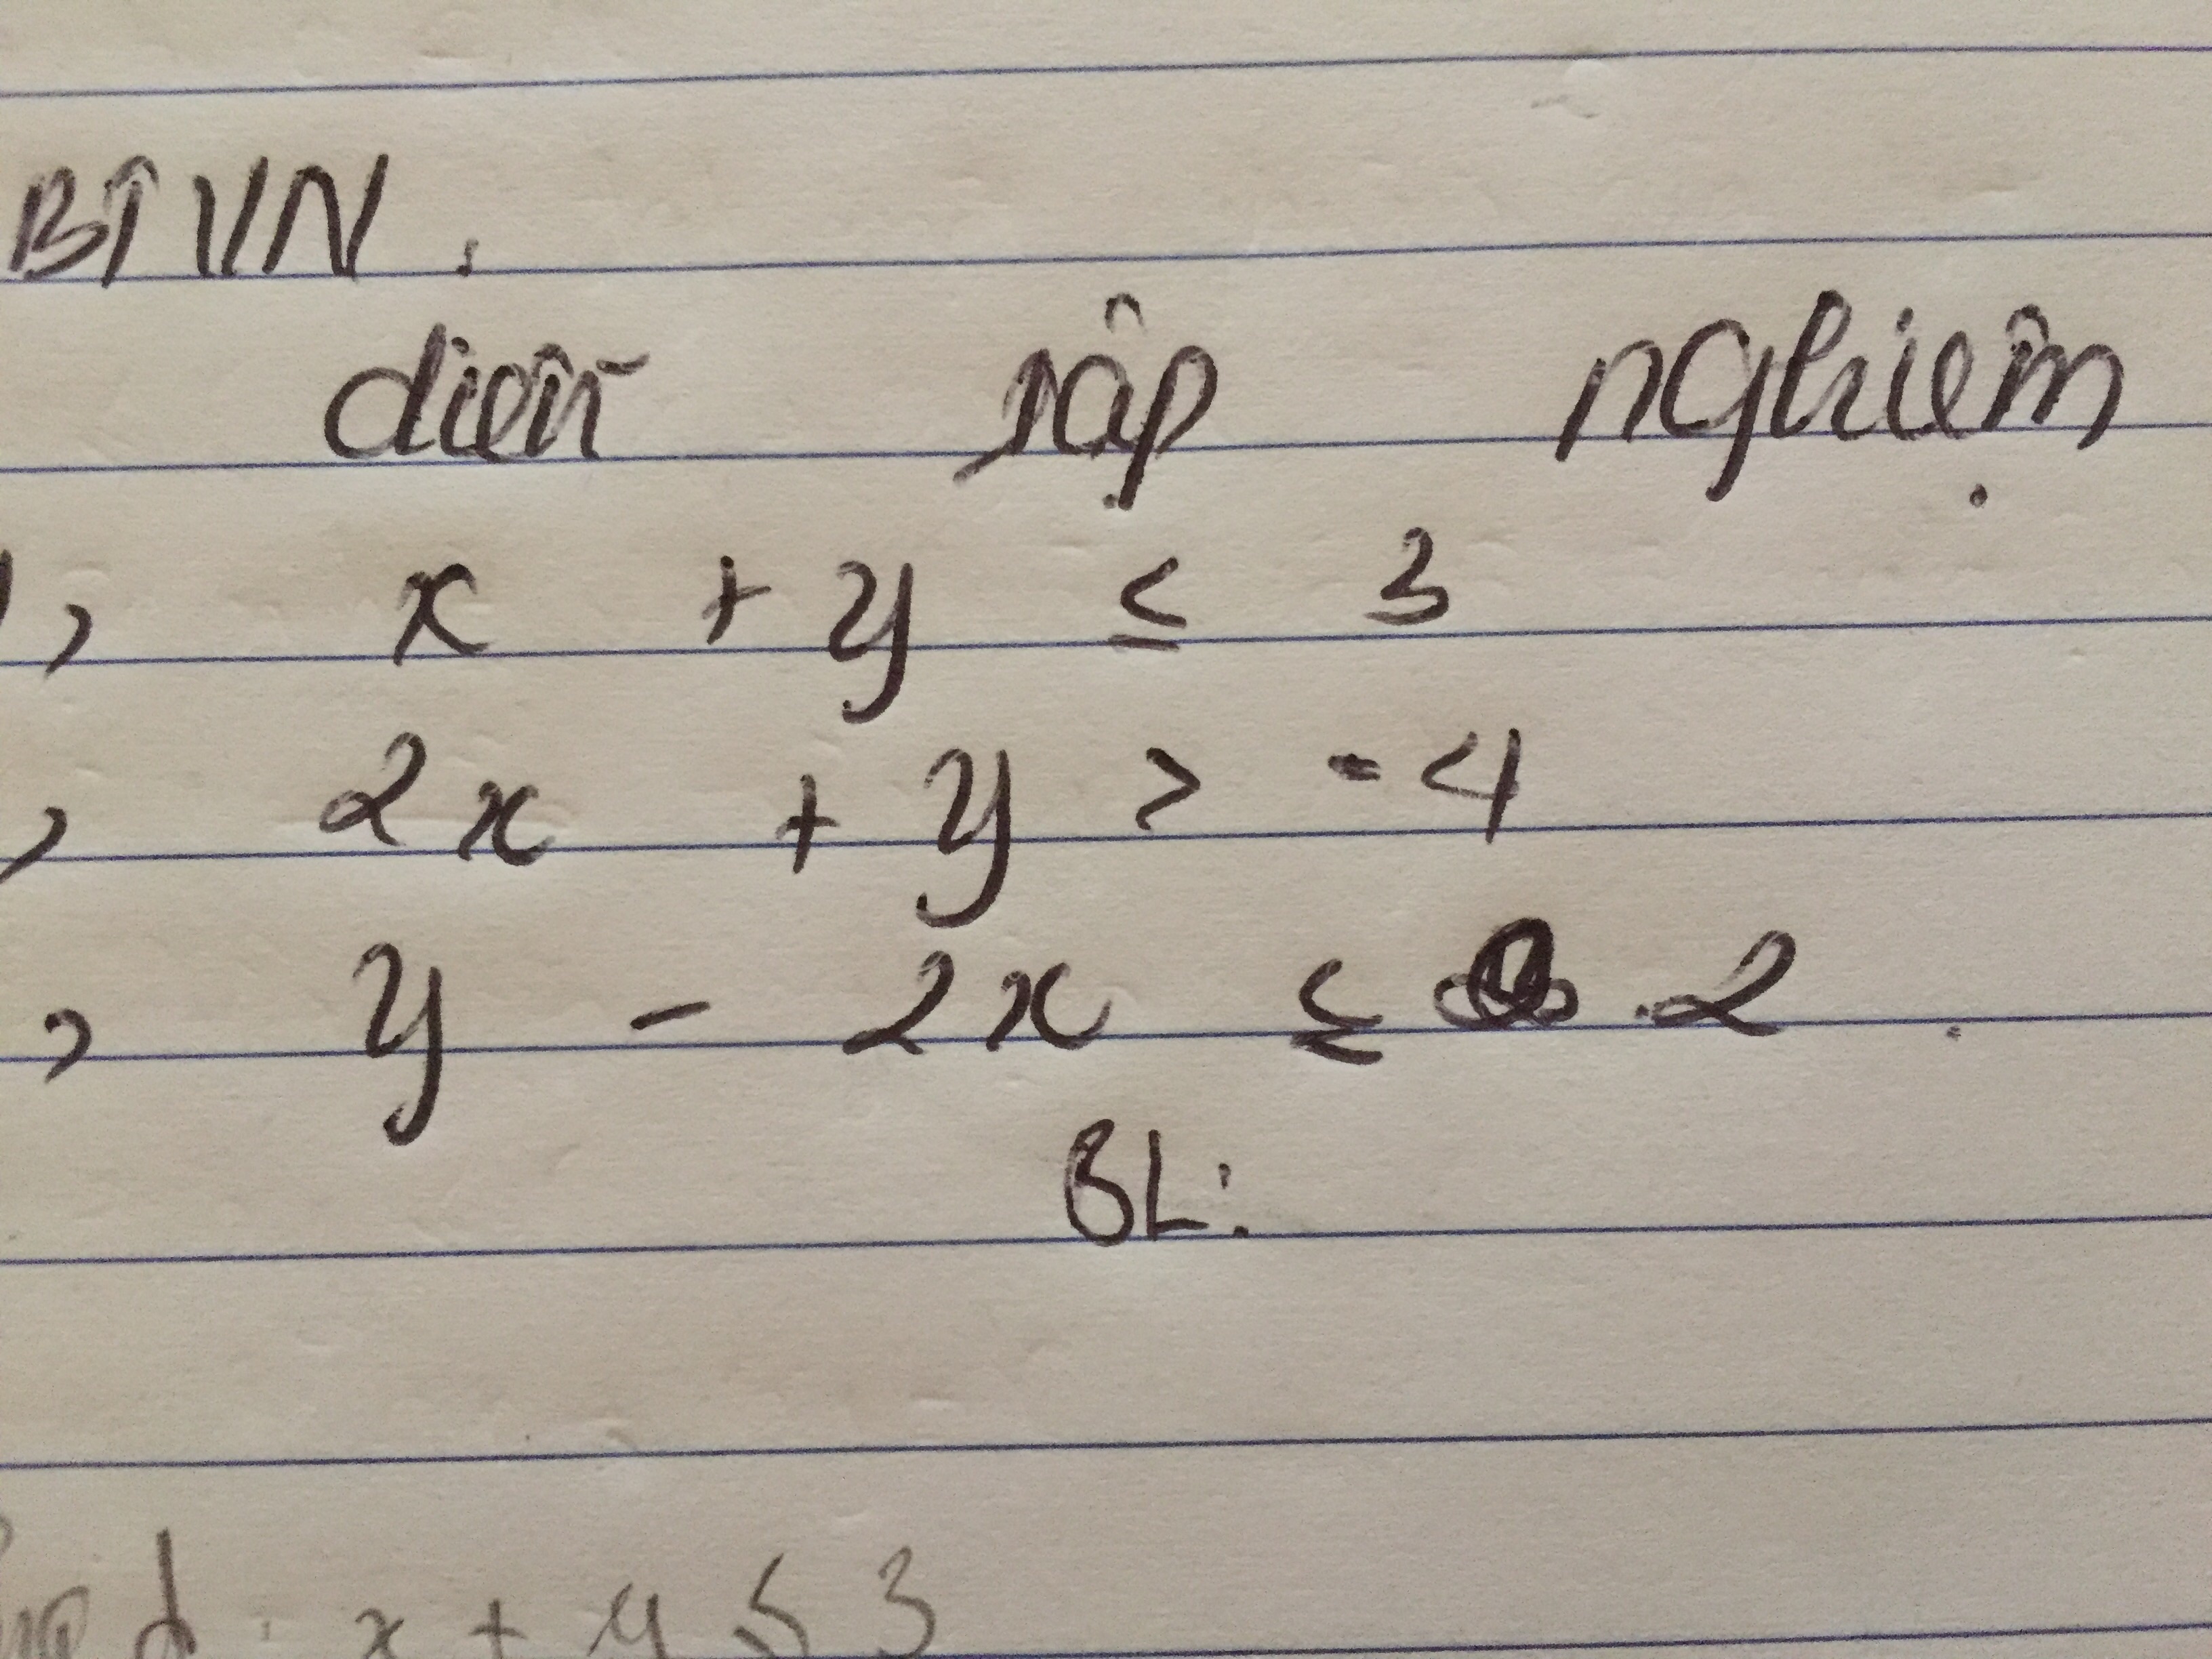 BTVN.
diễn tập nghiệm
, x + y ≤ 3
, 2x + y > -4
, y - 2x ≤ 2.
BL:
d: x + y ≤ 3